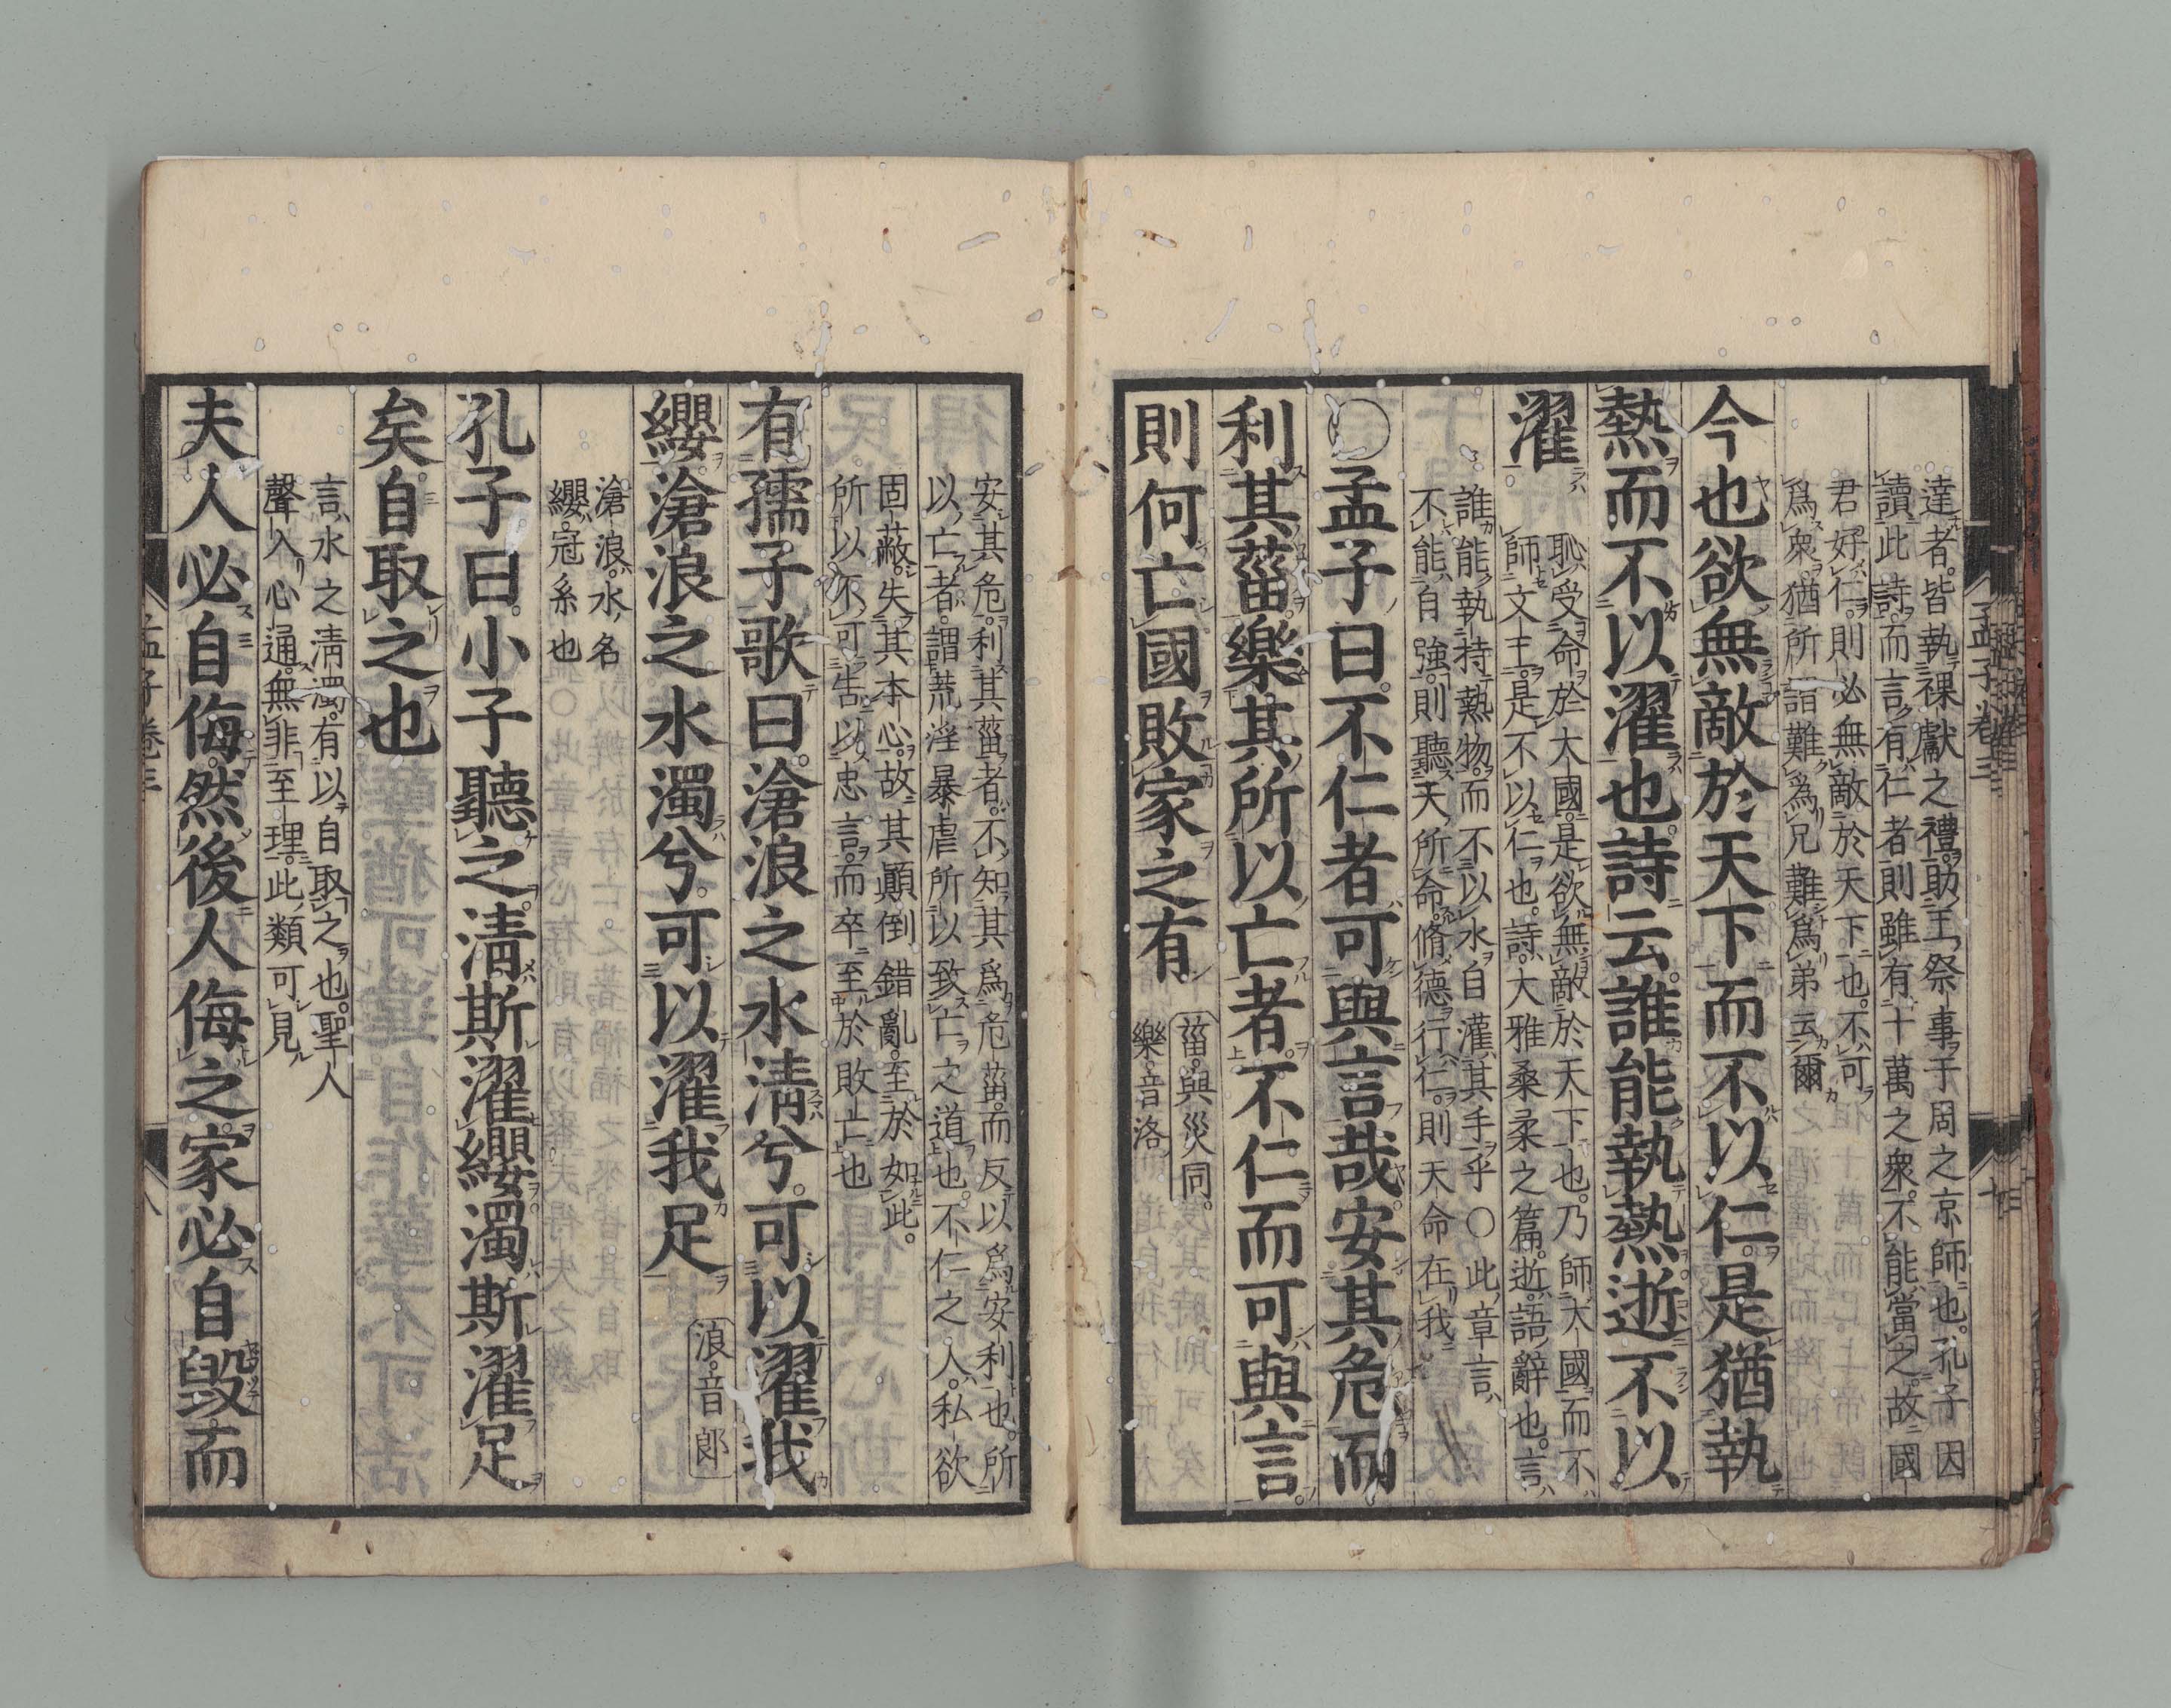 達者。皆執祼獻之禮。助王祭事于周之京師也。孔子因
讀此詩。而言有仁者則雖有十萬之衆。不能當之。故國
君好仁。則必無敵於天下也。不可
爲衆。猶所謂難爲兄難爲弟云爾
今也欲無敵於天下而不以仁。是猶執
熱而不以濯也。詩云。誰能執熱。逝不以
濯
恥受命於大國。是欲無敵於天下也。乃師大國而不
師文王。是不以仁也。詩。大雅桑柔之篇。逝。語辭也。言
誰能執持熱物。而不以水自濯其手乎〇此章言、
不能自強。則聽天所命。脩德行仁。則天命在我。
〇孟子曰。不仁者可與言哉。安其危而
利其菑。樂其所以亡者。不仁而可與言。
則何亡國敗家之有
菑。與災同。
樂。音洛
安其危。利其菑者。不知其爲危菑。而反以爲安利也。所
以亡者。謂荒淫暴虐所以致亡之道也。不仁之人。私欲
固蔽。失其本心。故其顚倒錯亂。至於如此。
所以不可告以忠言。而卒至於敗亡也
有孺子歌曰。滄浪之水淸兮。可以濯我
纓。滄浪之水濁兮。可以濯我足
浪。音郎
滄浪。水名
纓。冠系也
孔子曰。小子聽之。淸斯濯纓。濁斯濯足
矣。自取之也
言水之淸濁。有以自取之也。聖人
聲入心通。無非至理。此類可見
夫人必自侮。然後人侮之。家必自毁。而
孟子卷三
孟子卷三